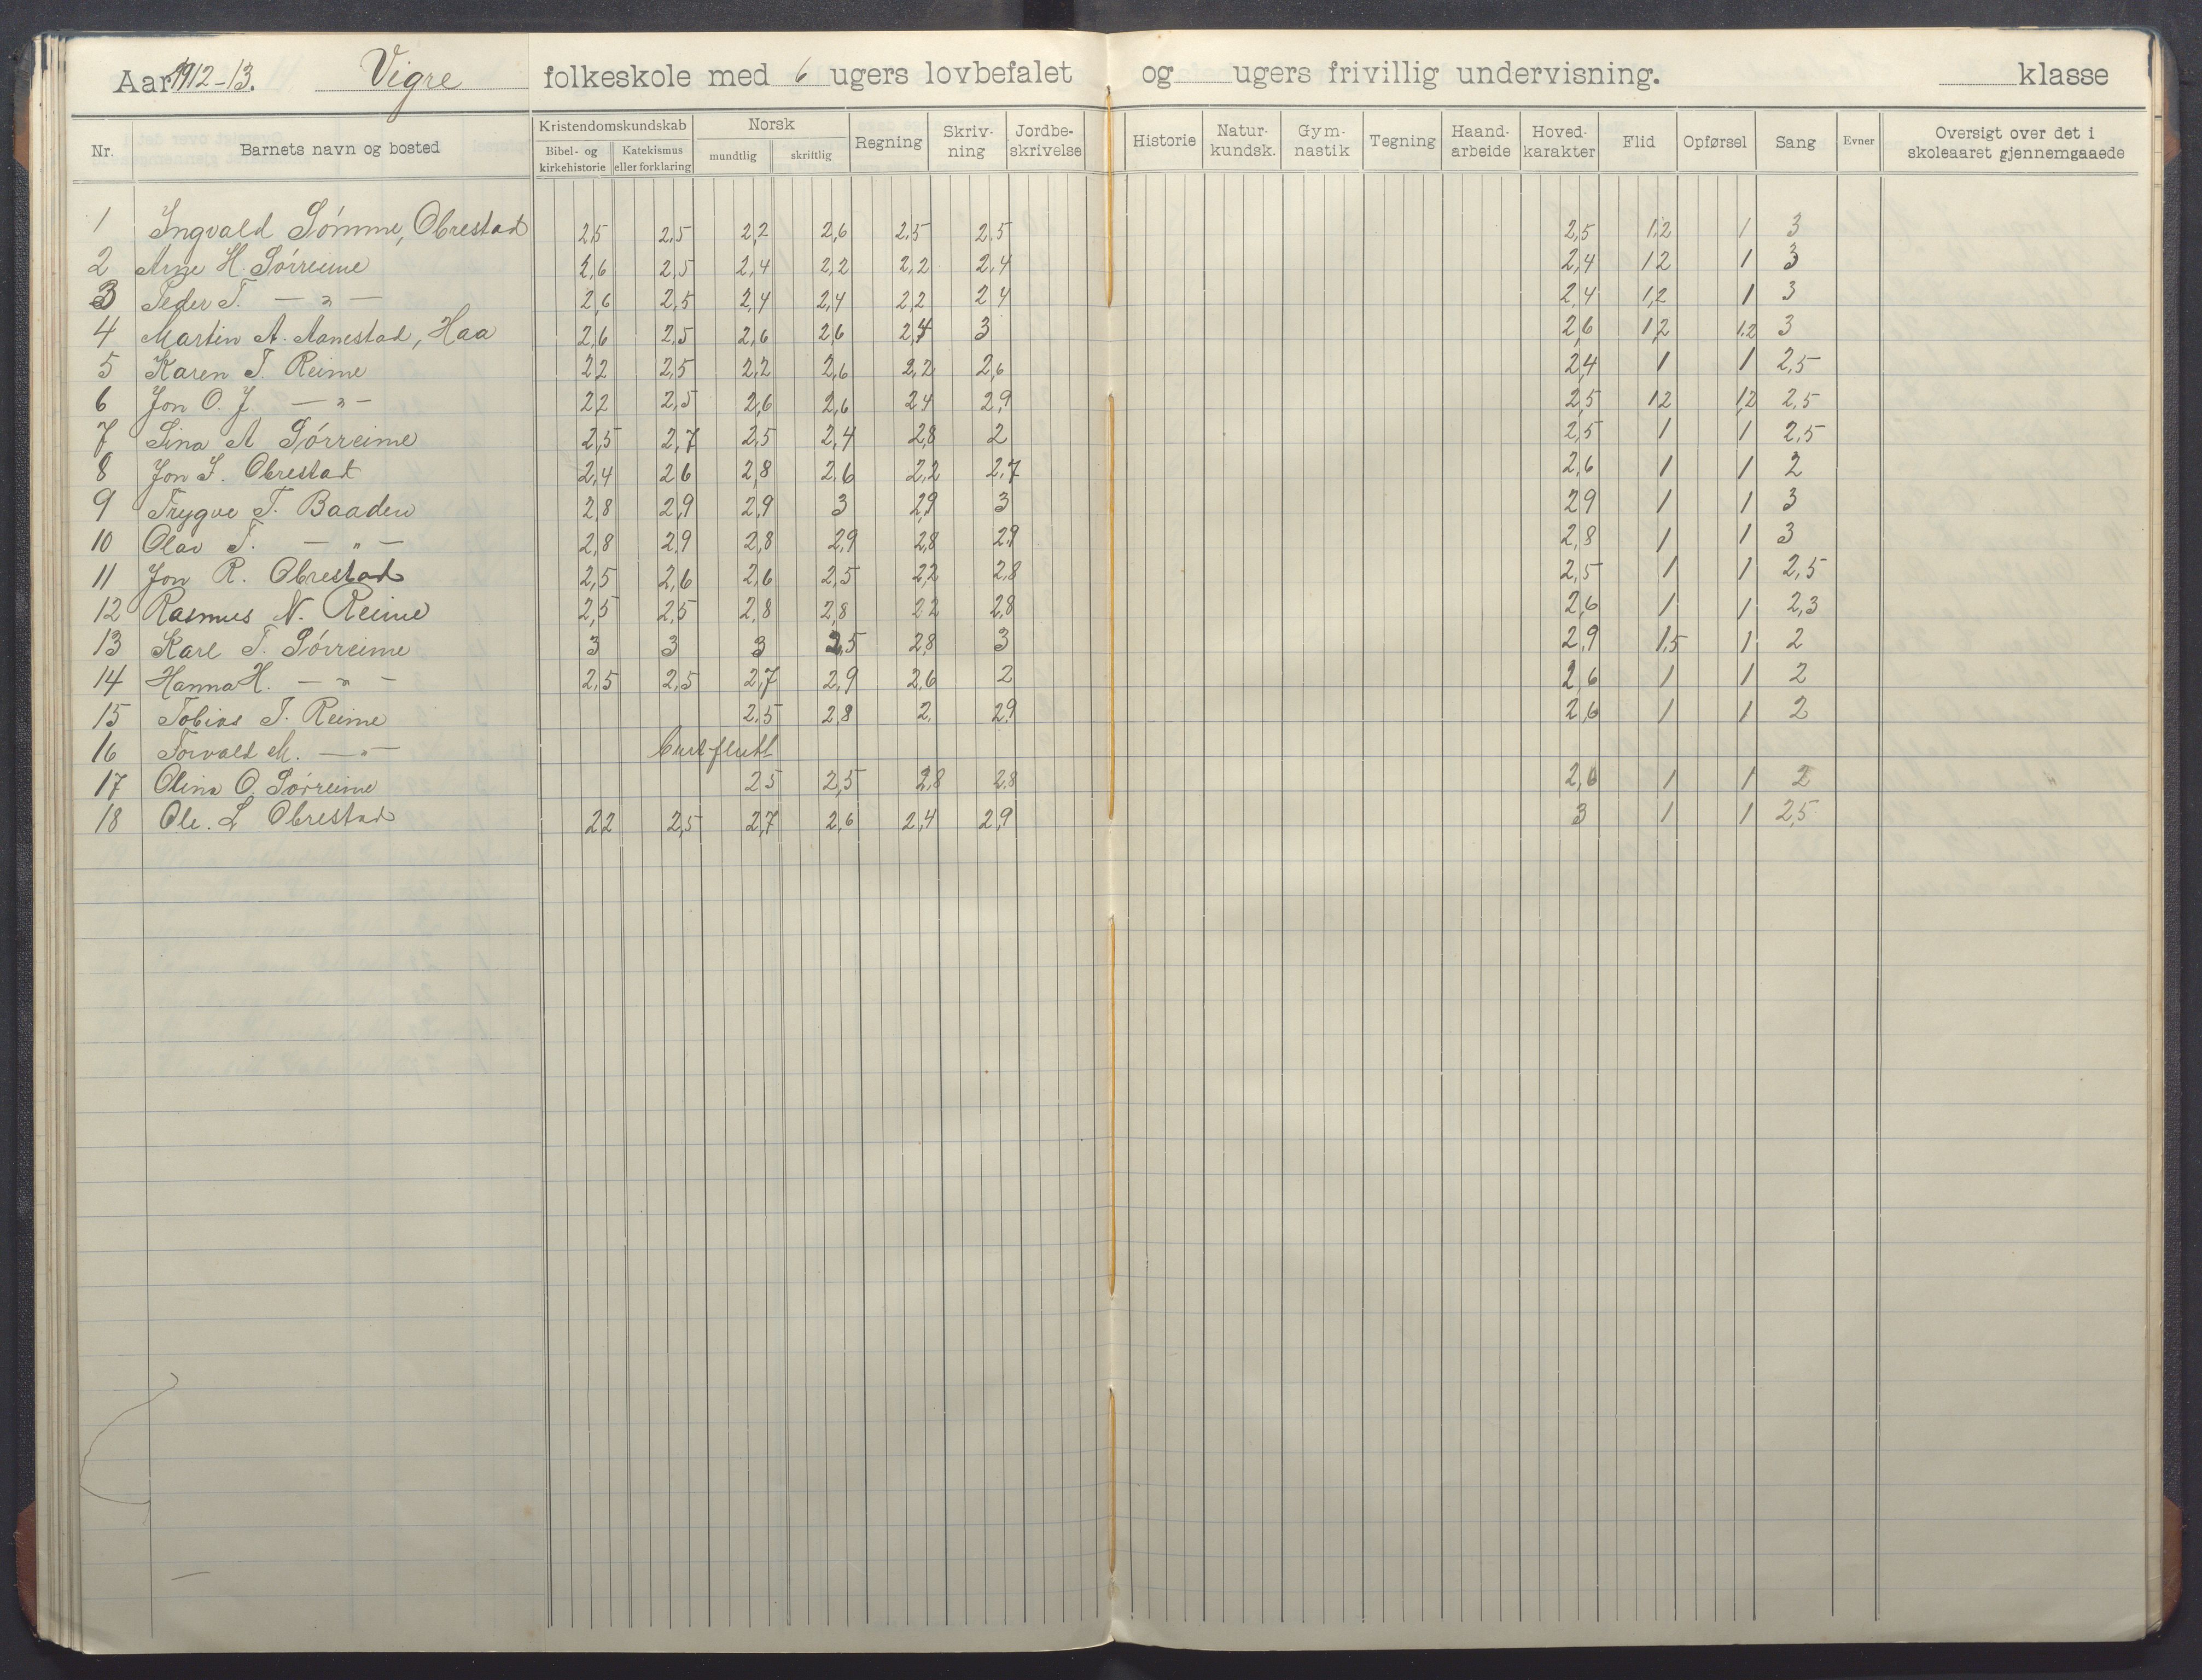 Aar 1912-13. Vigre folkeskole med 6 ugers lovbefalet og ugers frivillig undervisning. klasse
Nr. Barnets navn og bosted Kristendomskundskab Bibel- og kirkehistorie Katekismus eller forklaring Norsk mundtlig skriftlig Regning Skriv-ning Jordbe-skrivelse Historie Natur-kundsk. Gym-nastik Tegning Haand-arbeide Hoved-karakter Flid Opførsel Sang Evner Oversigt over det i skoleaaret gjennemgaaede
1 Ingvald Sömme, Obrestad 2,5 2,5 2,2 2,6 2,5 2,5 2,5 1,2 1 3
2 Arne H. Sörreime 2,6 2,5 2,4 2,2 2,2 2,4 2,4 1,2 1 3
3 Peder T. — " — 2,6 2,5 2,4 2,4 2,2 2,4 2,4 1,2 1 3
4 Martin A. Aanestad, Haa 2,6 2,5 2,6 2,6 2,4 3 2,6 1,2 1,2 3
5 Karen T. Reime 2,2 2,5 2,2 2,6 2,2 2,6 2,4 1 1 2,5
6 Jon O. J. — " — 2,2 2,5 2,6 2,6 2,4 2,9 2,5 1,2 1,2 2,5
7 Sina A Sörreime 2,5 2,7 2,5 2,4 2,8 2 2,5 1 1 2,5
8 Jon I. Obrestad 2,4 2,6 2,8 2,6 2,2 2,7 2,6 1 1 2
9 Trygve T. Baaden 2,8 2,9 2,9 3 2,9 3 2,9 1 1 3
10 Olav T. — " — 2,8 2,9 2,8 2,9 2,8 2,9 2,8 1 1 3
11 Jon R. Obrestad 2,5 2,6 2,6 2,5 2,2 2,8 2,5 1 1 2,5
12 Rasmus N. Reime 2,5 2,5 2,8 2,8 2,2 2,8 2,6 1 1 2,3
13 Karl T. Sörreime 3 3 3 2,5 2,8 3 2,9 1,5 1 2
14 Hanna H. — " — 2,5 2,5 2,7 2,9 2,6 2 2,6 1 1 2
15 Tobias T. Reime 2,5 2,8 2 2,9 2,6 1 1 2
16 Torvald M. — " —
17 Olina O. Sörreime 2,5 2,5 2,8 2,8 2,6 1 1 2 "
18 Ole. L Obrestad 2,2 2,5 2,7 2,6 2,4 2,9 3 1 1 2,5